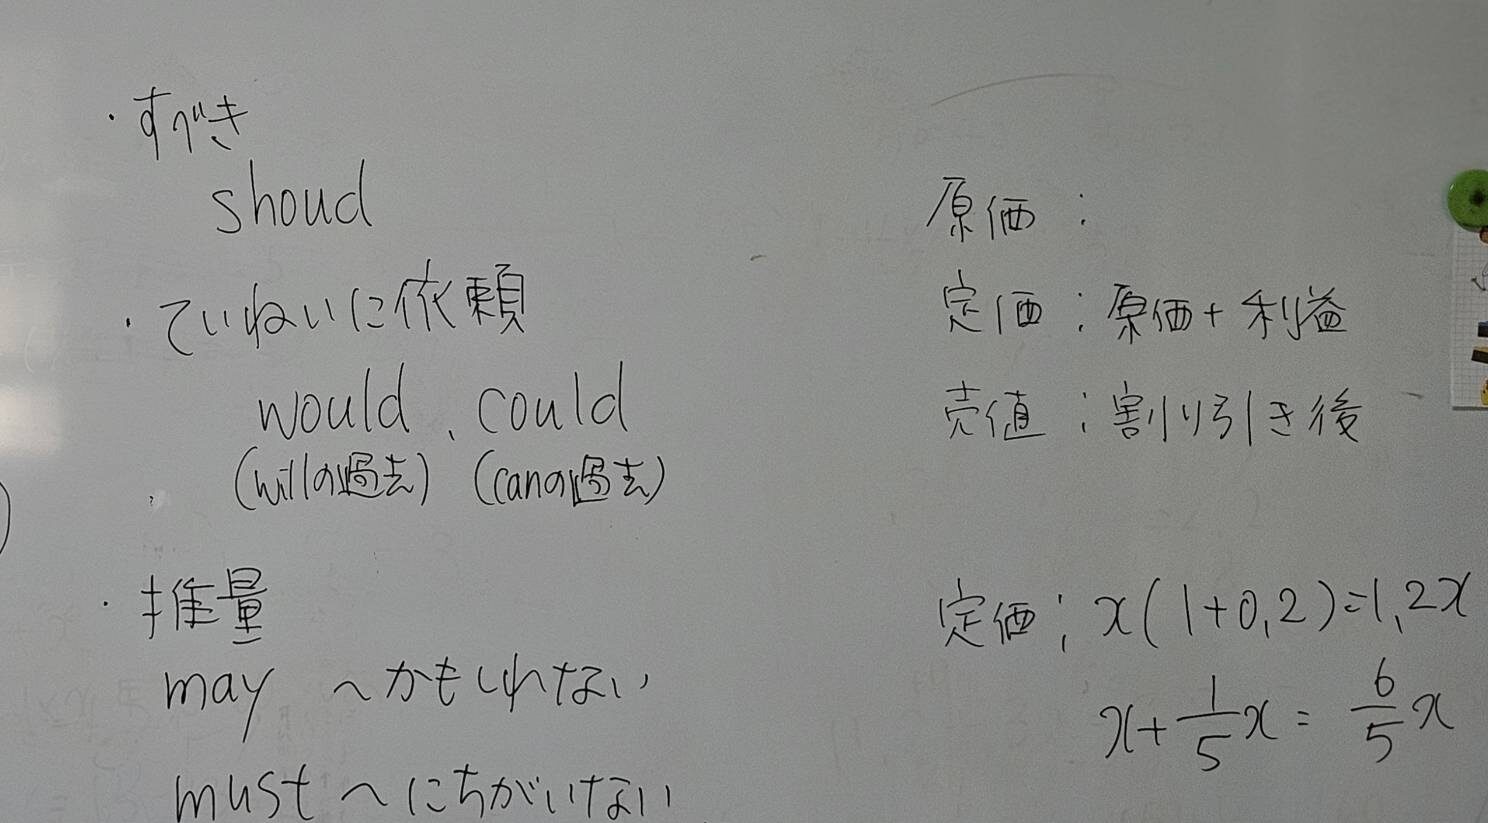 ・すべき
shoud
・ていねいに依頼
would、could
(willの過去) (canの過去)
・推量
may ～かもしれない
must ～にちがいない
原価：
定価：原価+利益
売値：割り引き後
定価：x(1+0,2)=1,2x
x+1/5x=6/5x